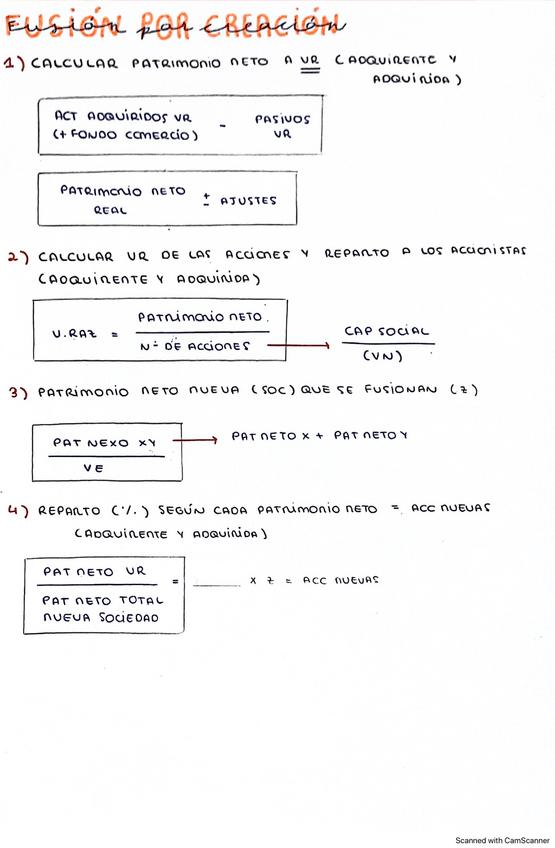 FUSIÓN POR CREACIÓN
Fusión por creación
1) CALCULAR PATRIMONIO NETO A VR (ADQUIRENTE Y
ADQUIRIDA)
ACT ADQUIRIDOS VR - PASIVOS
(+ FONDO COMERCIO) VR
PATRIMONIO NETO ± AJUSTES
REAL
2) CALCULAR VR DE LAS ACCIONES Y REPARTO A LOS ACCIONISTAS
(ADQUIRENTE Y ADQUIRIDA)
V.RAZ = PATRIMONIO NETO.
Nº DE ACCIONES → CAP SOCIAL
(VN)
3) PATRIMONIO NETO NUEVA (SOC) QUE SE FUSIONAN (Z)
PAT NEXO XY → PAT NETO X + PAT NETO Y
VE
4) REPARTO (%) SEGÚN CADA PATRIMONIO NETO = ACC NUEVAS
(ADQUIRENTE Y ADQUIRIDA)
PAT NETO VR = ______ X Z = ACC NUEVAS
PAT NETO TOTAL
NUEVA SOCIEDAD
Scanned with CamScanner